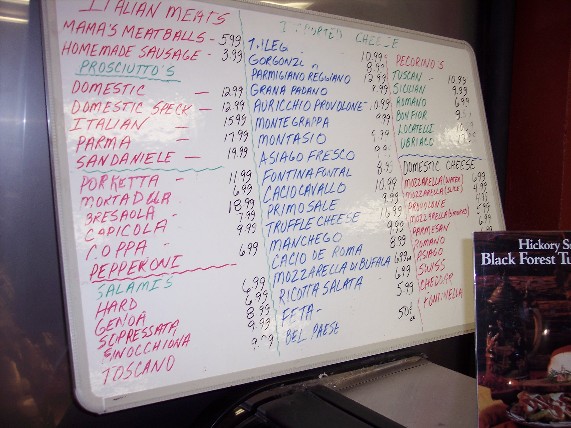 ITALIAN MEATS
MAMA'S MEATBALLS - 5.99
HOMEMADE SAUSAGE - 3.99
PROSCIUTTO'S
DOMESTIC — 12.99
DOMESTIC SPECK — 12.99
ITALIAN — 15.99
PARMA — 17.99
SANDANIELE — 19.99
PORKETTA - 11.99
MORTADELLA 6.99
BRESAOLA - 18.99
CAPICOLA - 7.99
COPPA - 9.99
PEPPERONI 6.99
SALAMIS
HARD 6.99
GENOA 6.99
SOPRESSATA 8.99
FINOCCHIONA 9.99
TOSCANO
IMPORTED CHEESE
10.99
GORGONZ
PARMIGIANO REGGIANO 12.99
GRANA PADANO
AURICCHIO PROVOLONE
MONTEGRAPPA 9.99
MONTASIO
ASIAGO FRESCO
FONTINA FONTAL
CACIOCAVALLO 10.99
PRIMO SALE 9.99
TRUFFLE CHEESE 16.99
MANCHEGO
CACIO DE ROMA 8.99
MOZZARELLA DI BUFALA
RICOTTA SALATA 6.99
FETA - 5.99
BEL PAESE
PECORINO'S
TUSCAN - 10.99
SICILIAN 9.99
ROMANO 6.99
BONFIOR
LOCATELLI
UBRIACO
DOMESTIC CHEESE
MOZZARELLA (WATER) 6.99
MOZZARELLA (SLICE) 4.99
PROVOLONE
MOZZARELLA (SMOKED)
PARMESAN
ROMANO
ASIAGO
SWISS
CHEDDAR
FONTINELLA
Hickory
Black Forest